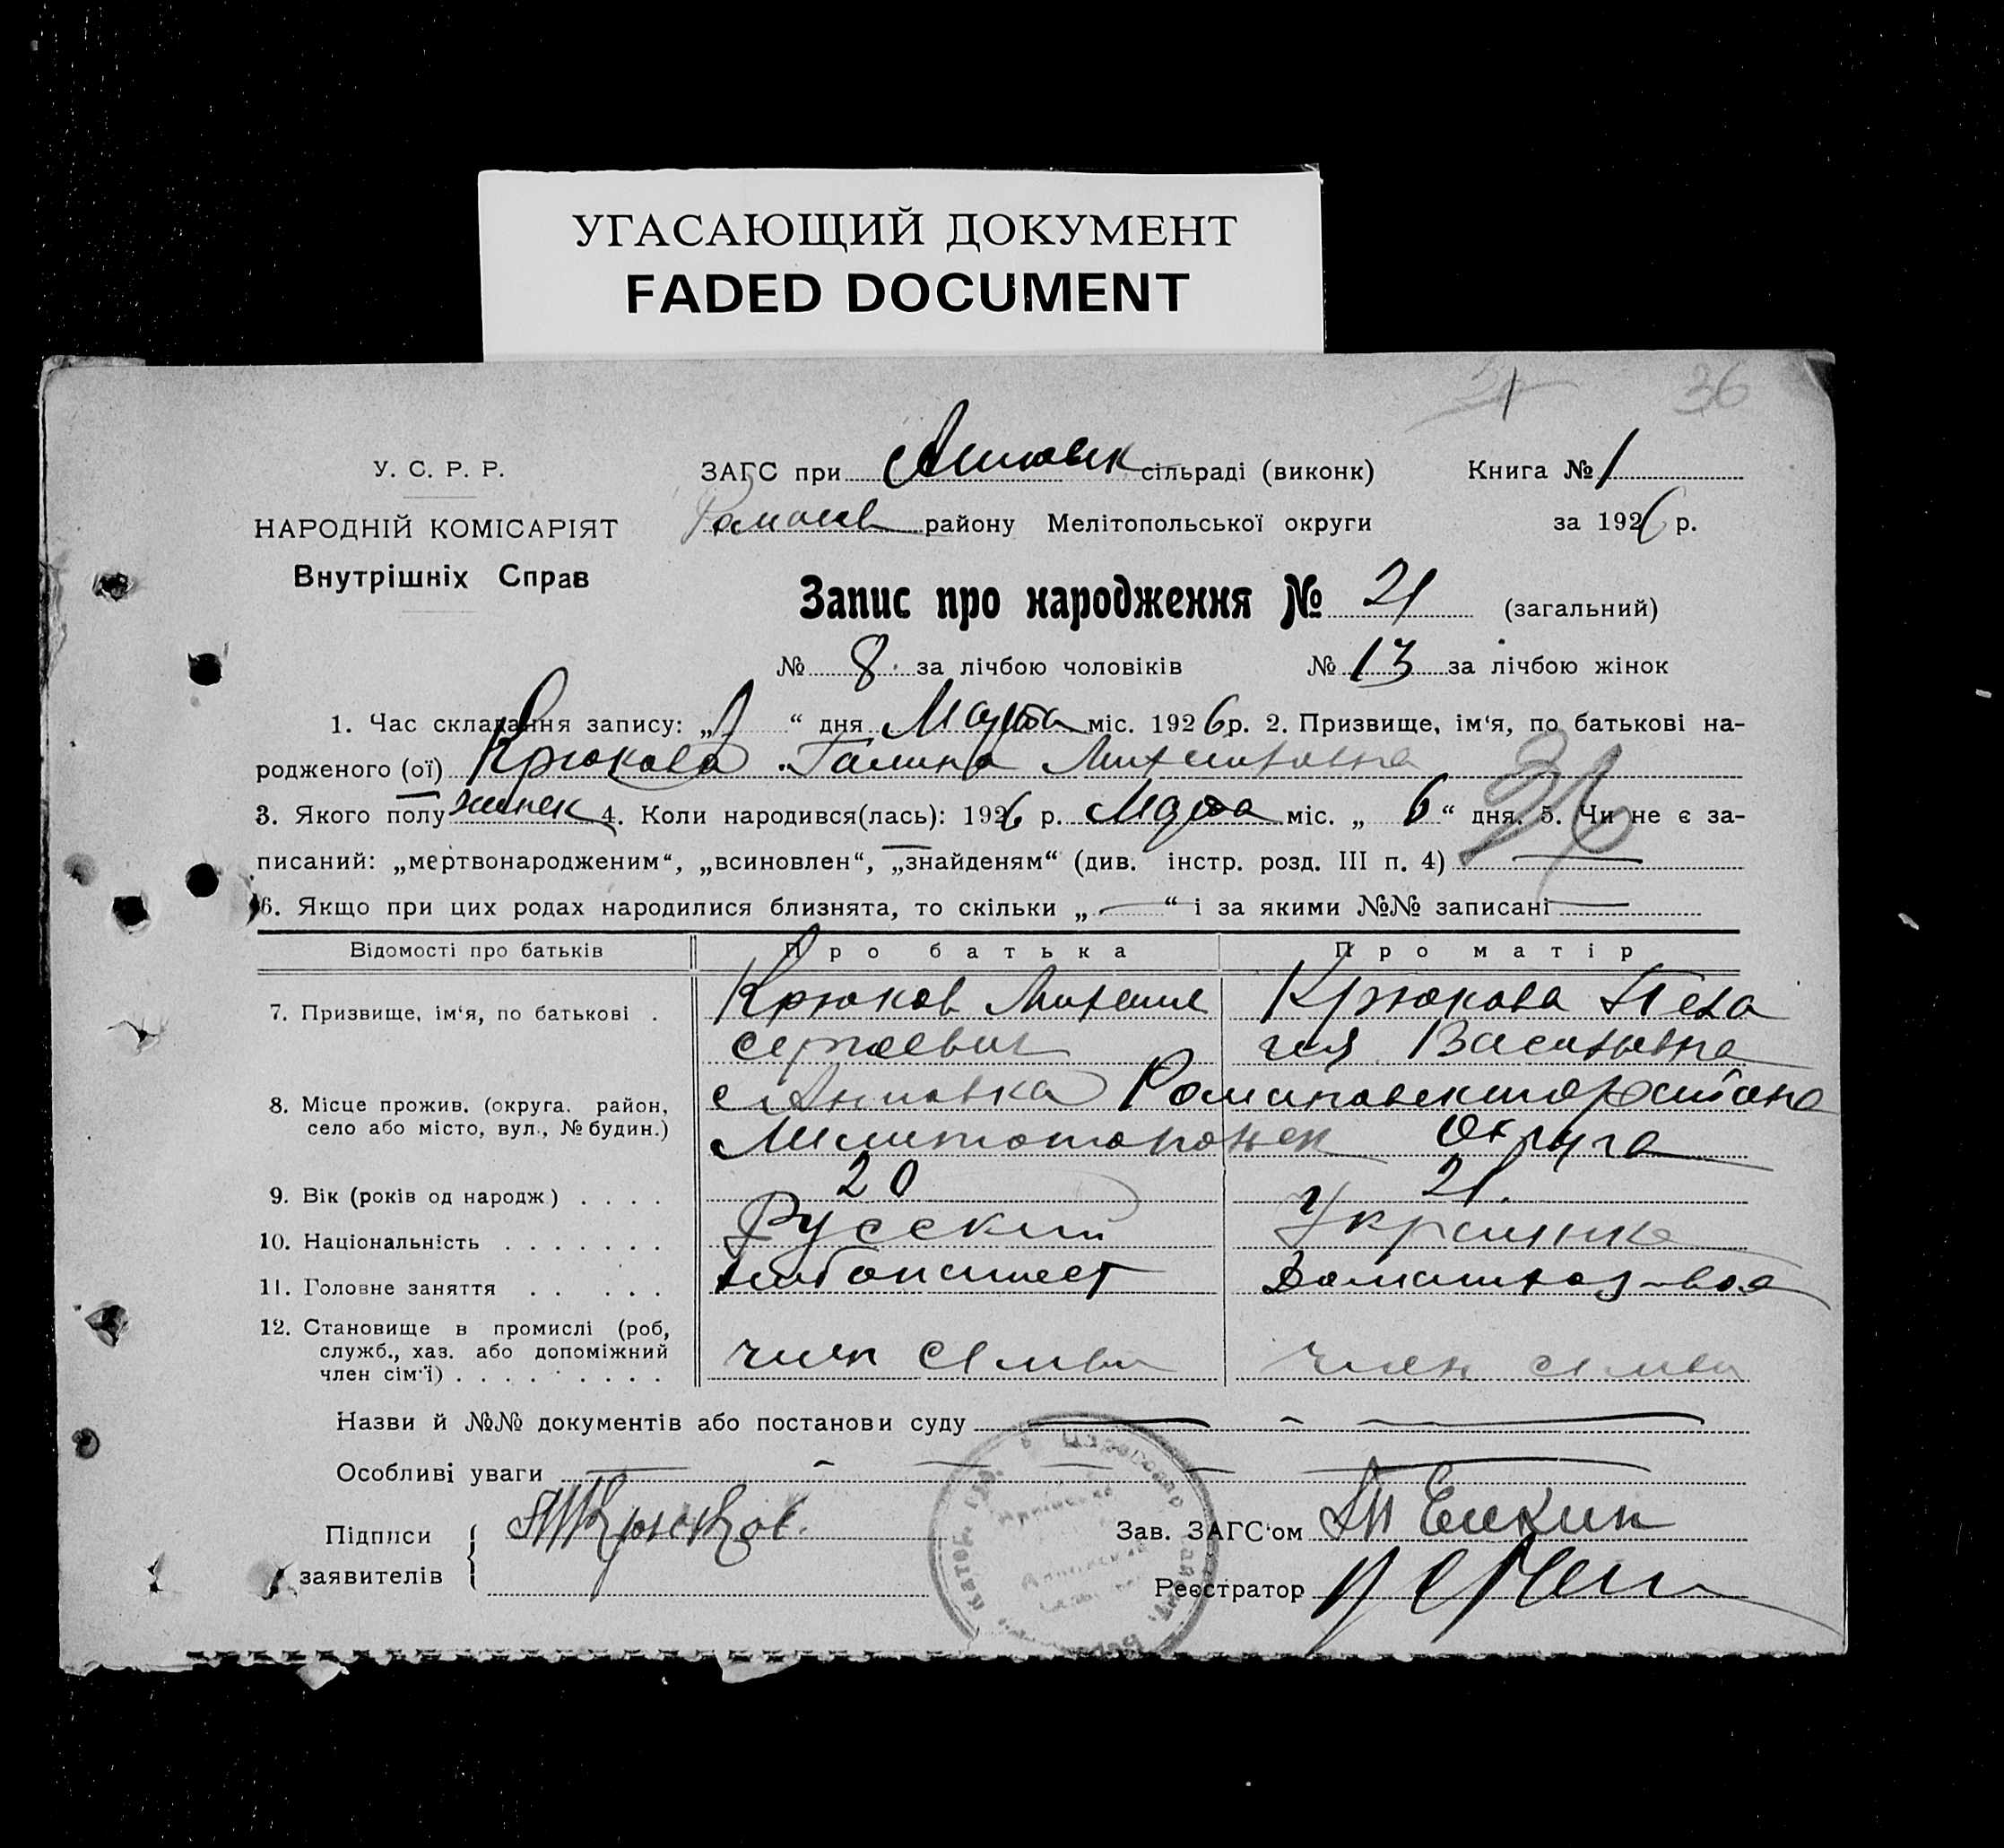 УГАСАЮЩИЙ ДОКУМЕНТ
FADED DOCUMENT
36
У. С. Р. Р.
ЗАГС при сільраді (виконк)
Книга № 1
НАРОДНІЙ КОМІСАРІЯТ
району Мелітопольської округи
за 1926 р.
Внутрішніх Справ
Запис про народження № 21 (загальний)
№ 8 за лічбою чоловіків № 13 за лічбою жінок
1. Час складання запису: „ “ дня Марта міс. 1926 р. 2. Призвище, ім‘я, по батькові на-
родженого (ої) Крюкова Галина Михайловна
3. Якого полу женск 4. Коли народився(лась): 1926 р. Марта міс. „ 6 “ дня. 5. Чи не є за-
писаний: „мертвонародженим“, „всиновлен“, „знайденям“ (див. інстр. розд. III п. 4)
6. Якщо при цих родах народилися близнята, то скільки „ “ і за якими №№ записані
Відомості про батьків Про батька Про матір
7. Призвище, ім‘я, по батькові . Крюков Михаил Крюкова Пела
сергеевич гия Васильевна
8. Місце прожив. (округа. район, с Анновка Романовского района
село або місто, вул., № будин.) округа
9. Вік (років од народж) . . . . 20 21.
10. Національність . . . . . . . Русский Украинка
11. Головне заняття . . . . . хлебопашест Домашхоз-воя
12. Становище в промислі (роб, член семьи член семьи
служб., хаз. або допоміжний
член сім‘ї) . . . . . . . . .
Назви й №№ документів або постанови суду
Особливі уваги
Підписи Крюков. Зав. ЗАГС‘ом
заявителів Реєстратор